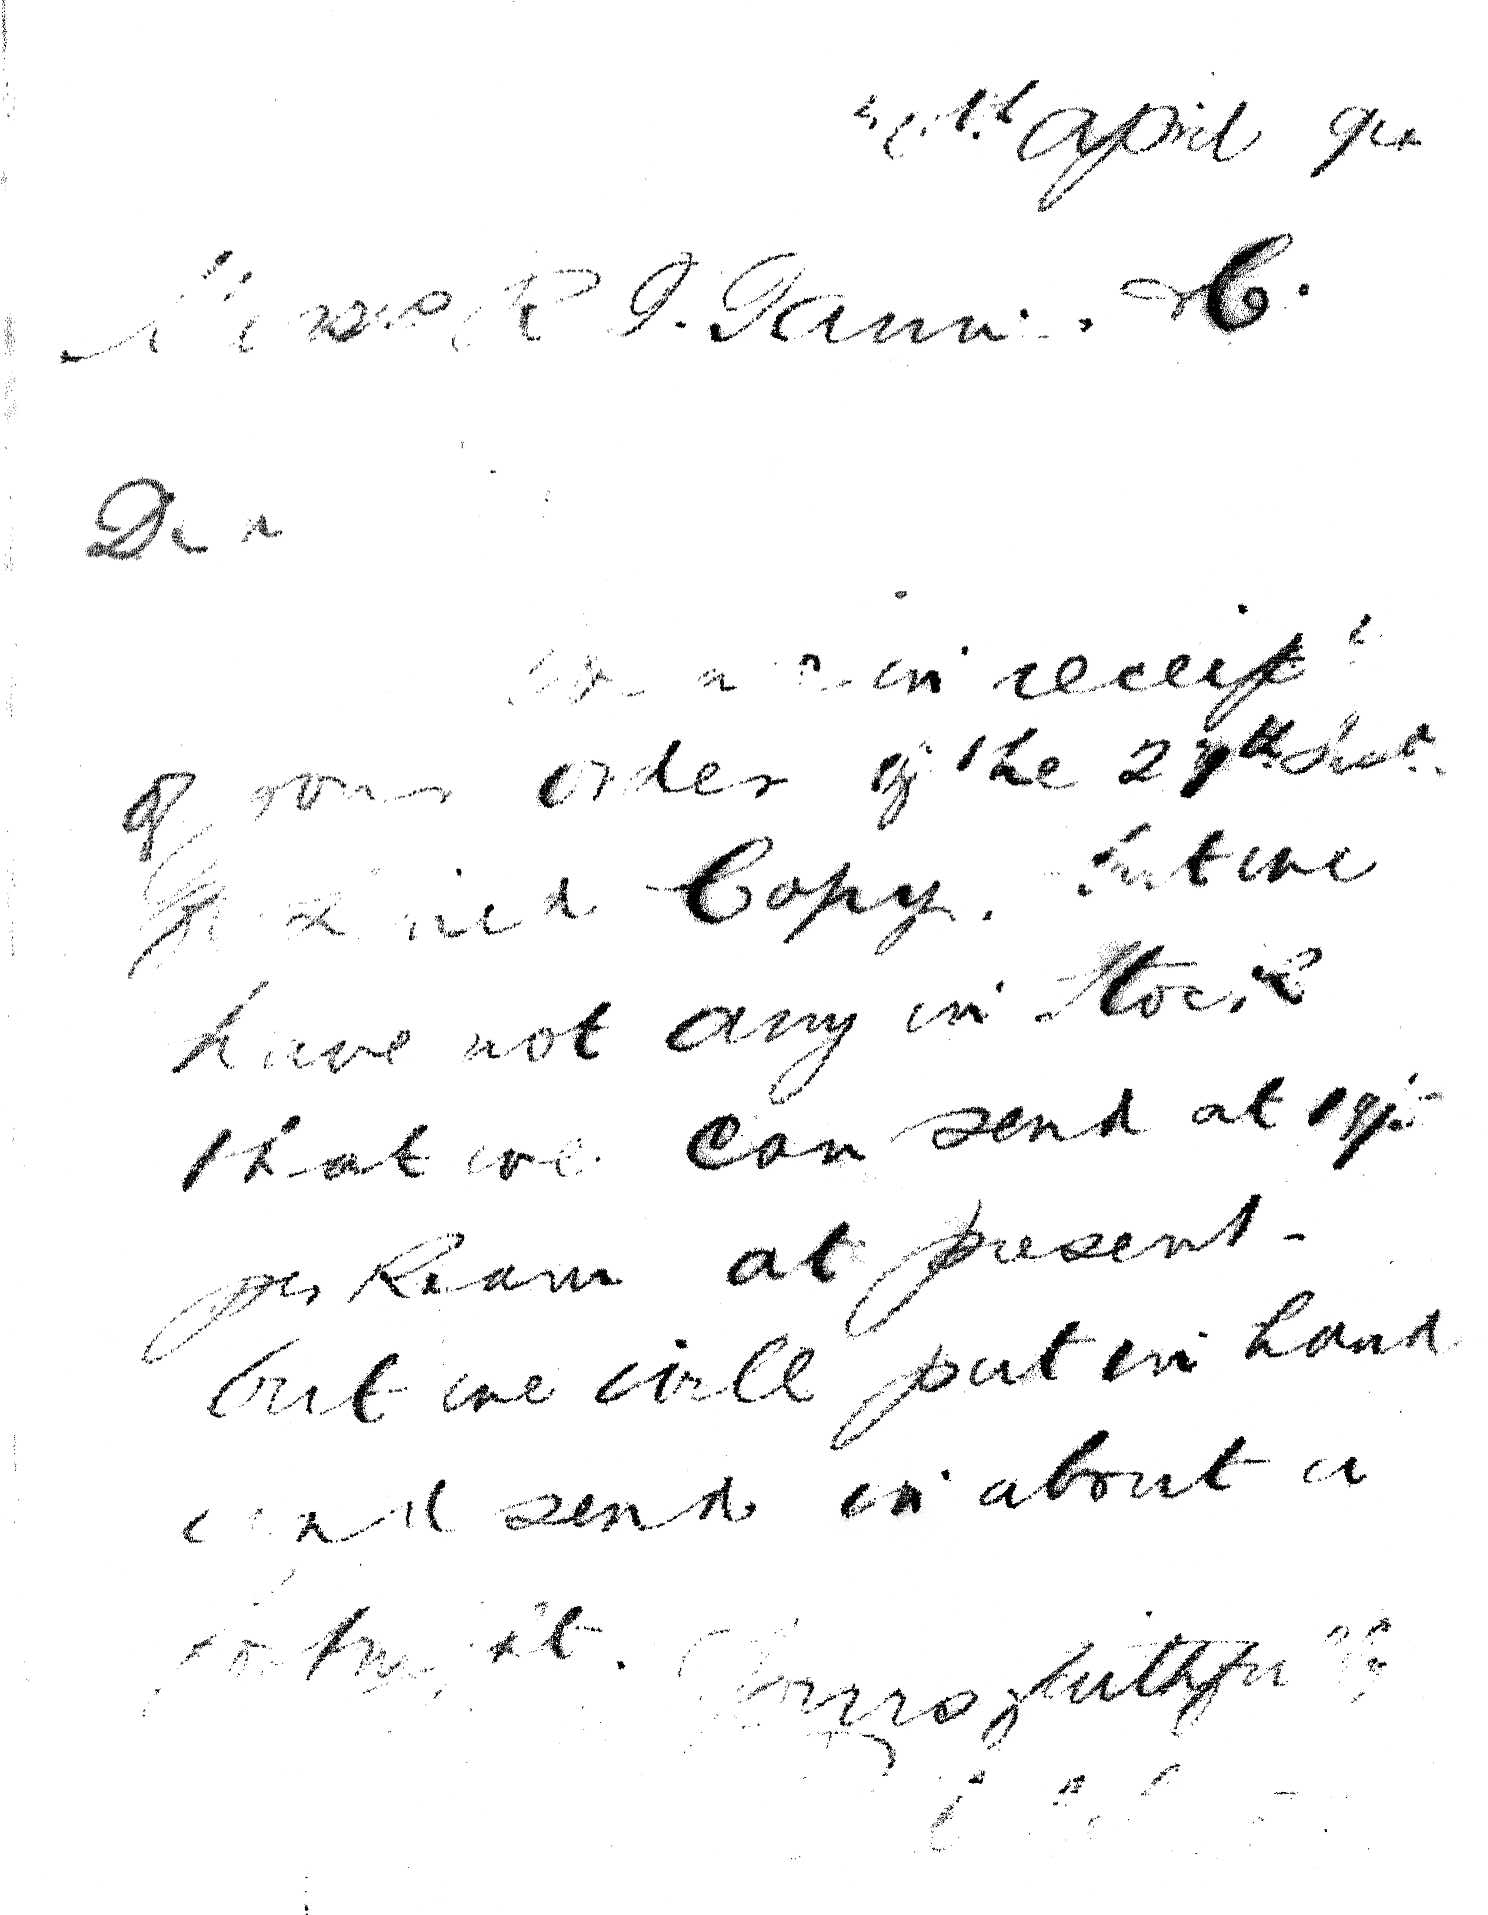 April
Messrs R T. Tann & C.
Dear
in receipt
of your order of the 27th Inst.
Copy. but we
have not any in Stock
that we can send at
per Ream at present -
but we will put in hand
and send in about a
fortnight. Yours faithfully